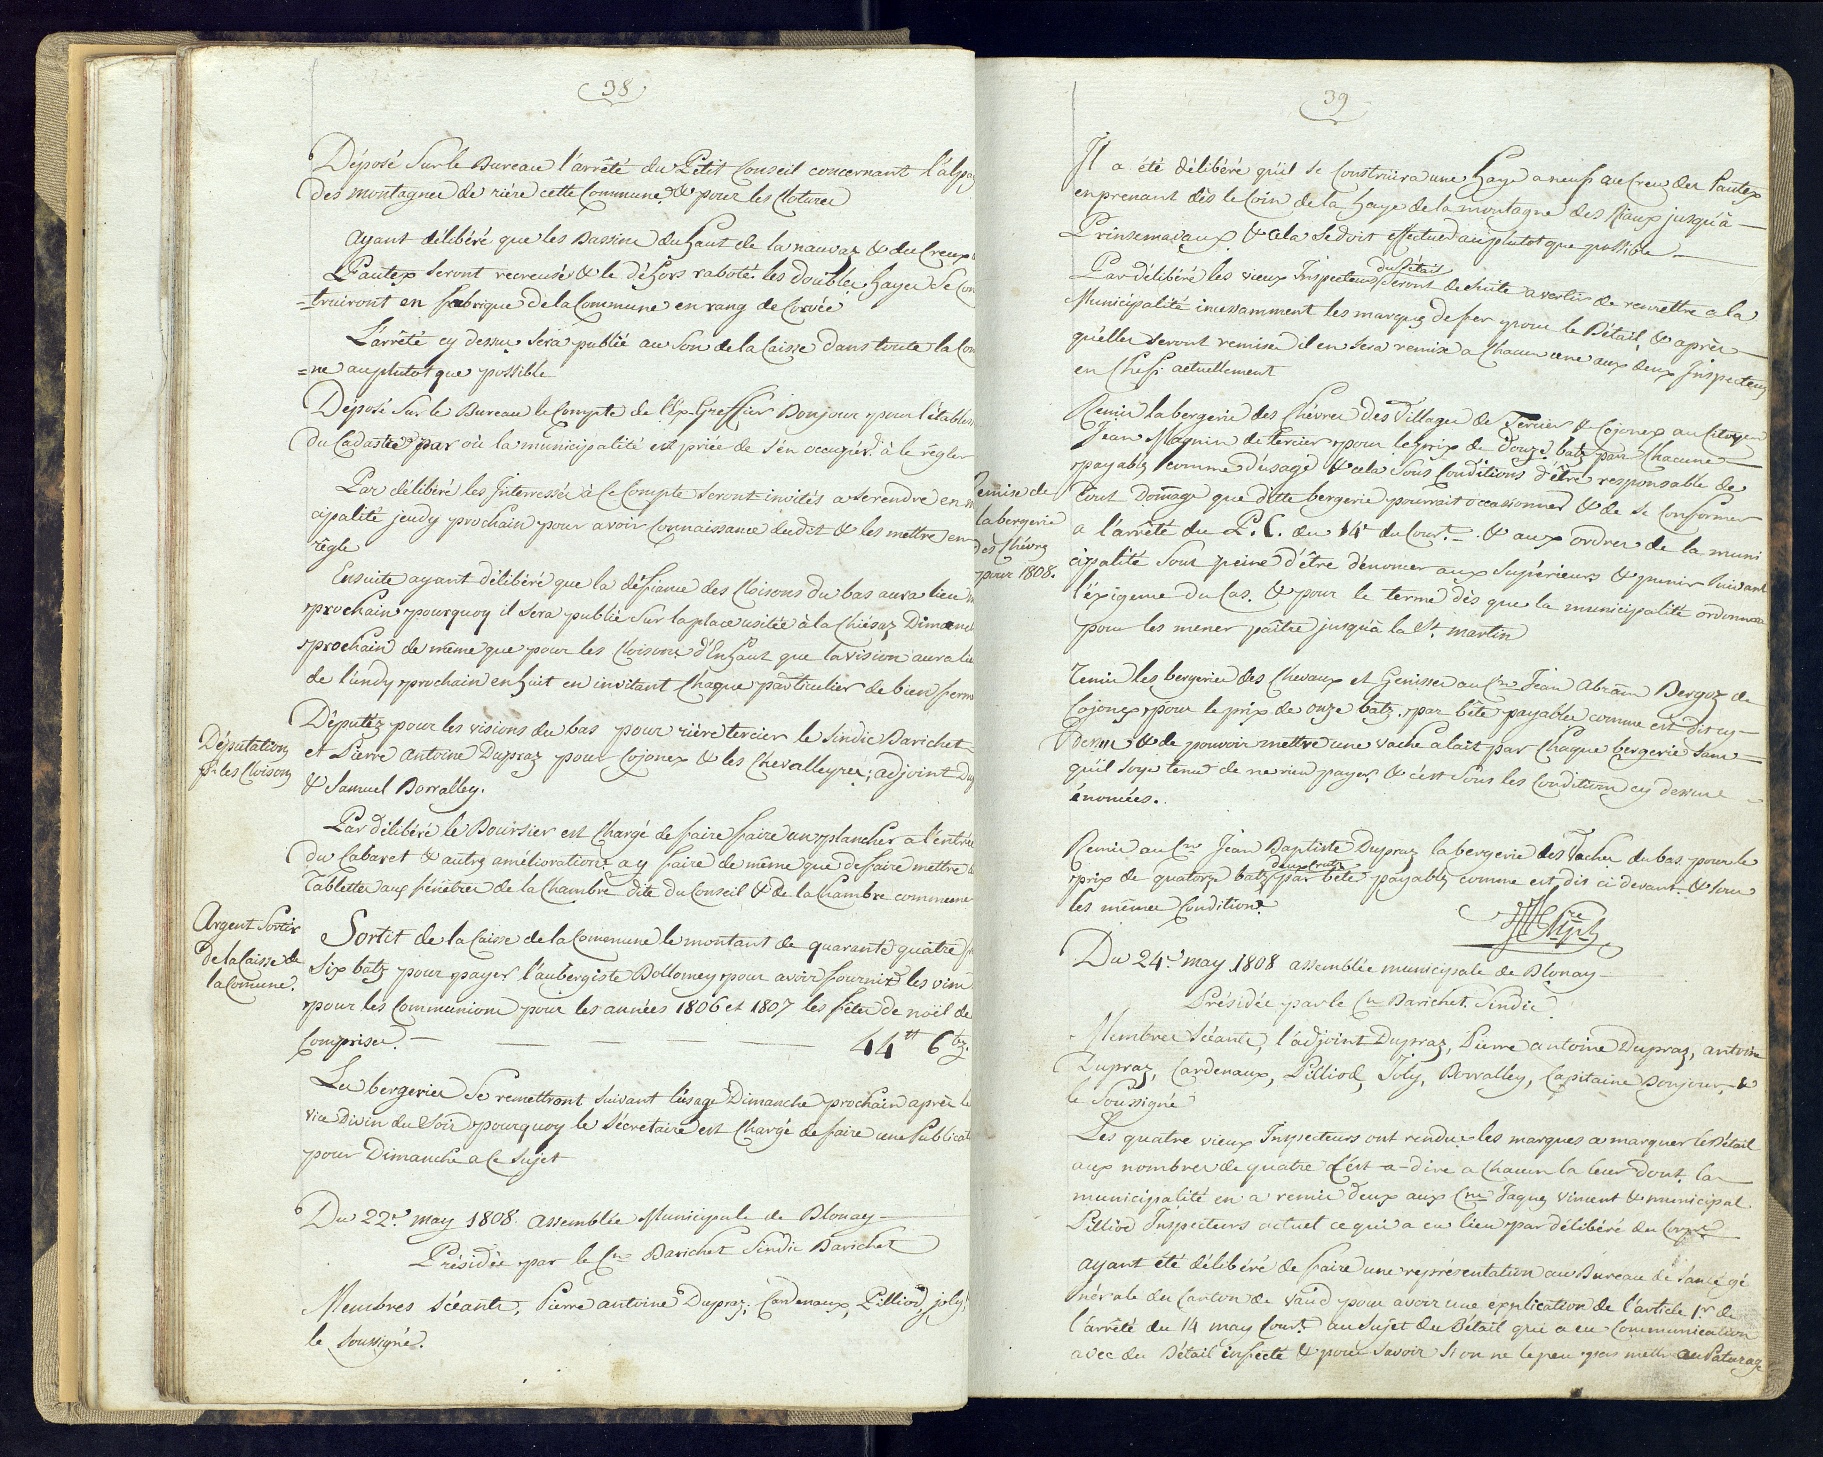 38
Déposé Sur le Bureau l'arrêté du Petit Conseil concernant l'alpa
des montagnes de riére cette Commune & pour les Cloturer
Ayant délibéré que les Bassins du haut de la nauvaz & du Creux
Pautex Seront recreusés & le déhors raboté les doubles hayes Se Con
=truiront en fabrique de la Commune en rang de Corvée
L'arrêté cy dessus Sera publié au Son de la Caisse dans toute la Com
=ne au plutot que possible
Déposé Sur le Bureau le Compte de l'Ex-Greffier Bonjour pour l'établis
du Cadastre par où la municipalité est priée de s'en occuper à le règler
Par délibéré les Interressés à Ce Compte Seront invités a se rendre en m
cipalité jeudy prochain pour avoir Connaissance dudit & les mettre en
règle
Ensuite ayant délibéré que la défiance des Cloisons du bas aura lieu
prochain pourquoy il Sera publié Sur la place usitée à la Chiésaz Dimanch
prochain de même que pour les Cloisons d'Enhaut que la vision aura lie
de lundy prochain en huit en invitant Chaque particulier de bien ferm
Députation
pr. les Cloisons
Députéz pour les visions du bas pour riére tercier le Sindic Barichet
et Pierre Antoine Dupraz pour Cojonex & les Chevalleyres; adjoint Dup
& Samuel Borralley.
Par délibéré le Boursier est Chargé de faire faire un plancher a l'entrée
du Cabaret & autres améliorations a y faire de même que de faire mettre d
Tablettes aux fénêtres de la Chambre dite du Conseil & de la Chambre commune
Argent Sortir
de la Caisse de
la Comune.
Sortit de la Caisse de la Commune le montant de quarante quatre f
Six batz pour payer l'aubergiste Dollomey pour avoir fournit les vins
pour les Communions pour les années 1806 et 1807 les fêtes de noël de
Comprises. — 44 tt 6 bz.
Les bergeries Se remettront Suivant l'usage Dimanche prochain après le
vice Divin du Soir pourquoy le Sécretaire est Chargé de faire une Publicat
pour Dimanche a Ce Sujet
Du 22e. may 1808 assemblée Municipale de Blonay
Présidée par le Cn Barichet Sindic Barichet
Membres Séants, Pierre antoine Dupraz, Cardenaux, Pilliod, joly,
le Soussigné.
39
Il a été délibéré qu'il Se Construira une haye a neuf au Creux des Pautex
en prenant dès le Coin de la haye de la montagne des Riaux jusqu'à
Prinsemavaux & Cela Se doit effectuer au plutot que possible
Par délibéré les vieux Inspecteurs du Bétail Seront de Suite avertis de remettre a la
Municipalité incessamment les marques de fer pour le Bétail, & après
qu'elles Seront remises il en Sera remise a Chacun une aux deux Inspecteurs
en Chefs actuellement
Remise de
la bergerie
des Chévres
pour 1808.
Remis la bergerie des Chévres des Villages de Tercier & Cojonex au Citoyen
Jean Magnin de tercier pour le prix de Douze batz par Chacune
payables comme d'usage & cela Sous Conditions d'être responsable de
tout domage que ditte bergerie pourrait occasionner & de se Conformer
a l'arrêté du P. C. du 14e du Cour.t & aux ordres de la muni
cipalité Sous peine d'être dénoncer aux Supérieurs & punir Suivant
l'éxigence du Cas. & pour le terme dès que la municipalité ordonnera
pour les mener paître jusqu'à la St. martin
Remis les bergeries des Chevaux et Genisses au Cn Jean Abram Dergoz de
Cojonex pour le prix de onze batz par bête payables comme est dit cy-
dessus & de pouvoir mettre une vache a lait par Chaque bergerie Sans
qu'il Soye tenu de ne rien payer & c'est Sous les Conditions cy dessus
énoncées.
Remis au Cn Jean Baptiste Dupraz la bergerie des Vaches du bas pour le
prix de quatorze batz deux cruts par bête payables comme est dit ci devant & sous
les mêmes Conditions.
Du 24e. may 1808 assemblée municipale de Blonay
Présidée par le Cn Barichet Sindic
Membres Séants, l'adjoint Dupraz, Pierre antoine Dupraz, antoine
Dupraz, Cardenaux, Pilliod, Joly, Borralley, Capitaine Bonjour, &
le Soussigné
Les quatre vieux Inspecteurs ont rendus les marques a marquer le Bétail
aux nombres de quatre C'est-a-dire a Chacun la leur dont la
municipalité en a remis deux aux Cns Jaques Vincent & municipal
Pilliod Inspecteurs actuel ce qui a eu lieu par délibéré du Corps
Ayant été délibéré de faire une représentation au Bureau de Santé gé
nérale du Canton de Vaud pour avoir une éxplication de l'article 1r. de
l'arrêté du 14 may Cour.t au Sujet du Bétail qui a eu Communication
avec du Bétail infecté & pour Savoir Si on ne le peu pas mettre au Paturage